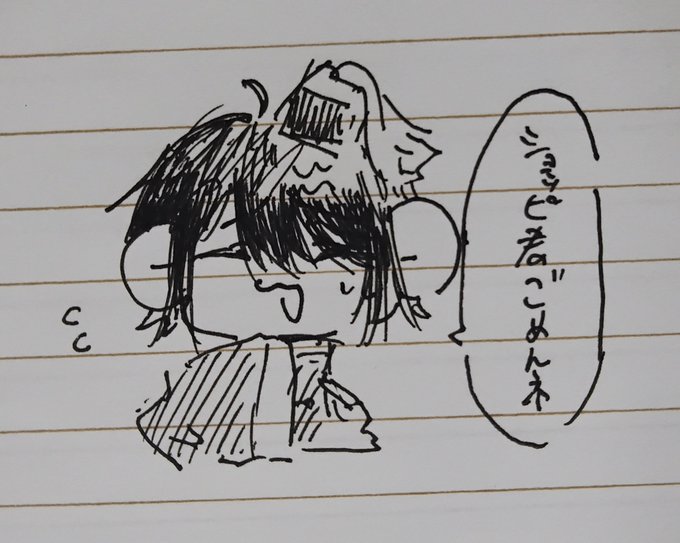 ショッピ君ごめんネ